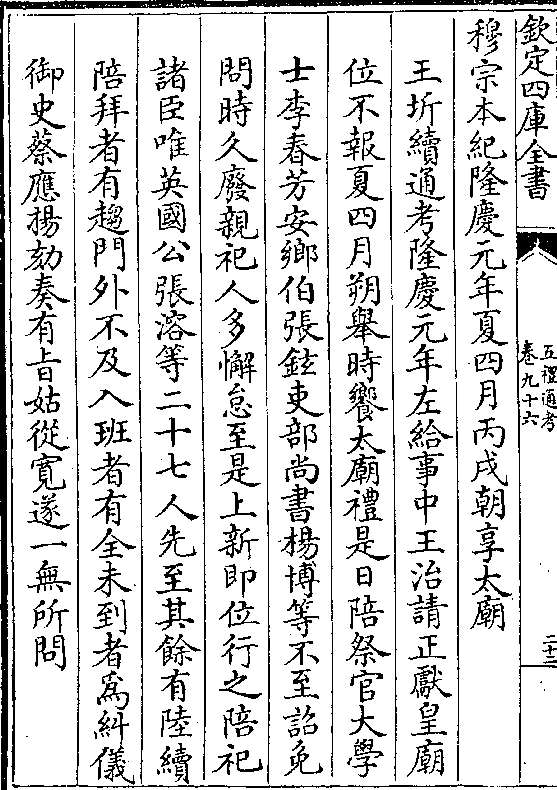 欽定四庫全書
五禮通考
卷九十六
二十二
穆宗本紀隆慶元年夏四月丙戌朝享太廟
王圻續通考隆慶元年左給事中王治請正獻皇廟
位不報夏四月朔舉時饗太廟禮是日陪祭官大學
士李春芳安鄉伯張鋐吏部尚書楊博等不至詔免
問時久廢親祀人多懈怠至是上新即位行之陪祀
諸臣唯英國公張溶等二十七人先至其餘有陸續
陪拜者有趨門外不及入班者有全未到者為糾儀
御史蔡應揚劾奏有旨姑從寬遂一無所問